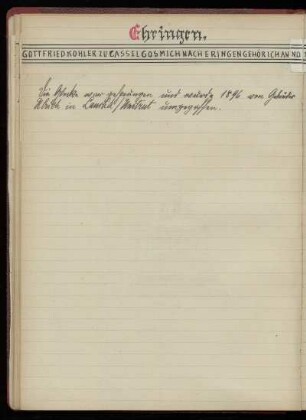 Ehringen.
GOTTFRIED KOHLER ZU CASSEL GOS MICH NACH ERINGEN GEHÖR ICH AN NO
Die Glocke war gesprungen und wurde 1896 von Gebrüder
Ulrich in umgegossen.